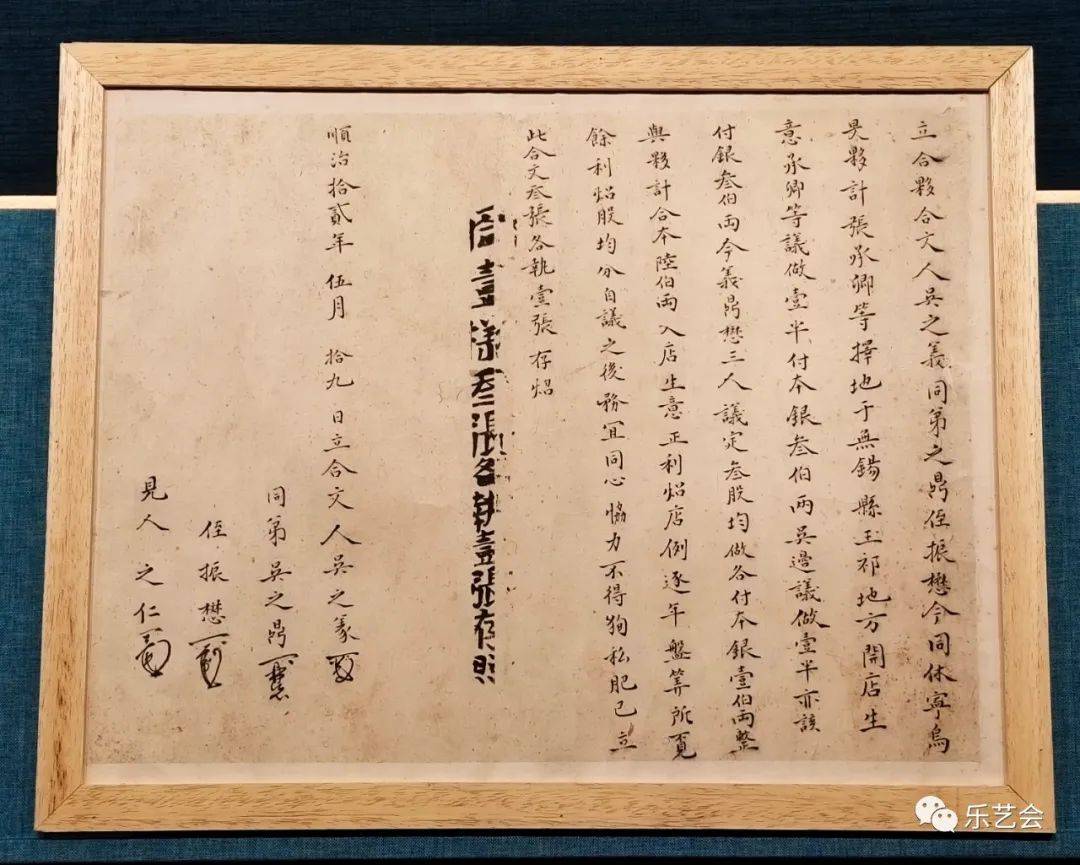 立合夥合文人吳之義同弟之鼎侄振懋今同休寧烏
夥計張承卿等擇地于無錫縣玉祁地方開店生
意承卿等議做壹半付本銀叁伯兩吳邊議做壹半亦該
付銀叁伯兩今義鼎懋三人議定叁股均做各付本銀壹伯兩整
與夥計合本陸伯兩入店生意正利炤店例逐年盤筭所
餘利炤股均分自議之後務宜同心協力不得狥私肥己立
此合文叁張各執壹張存炤
壹樣叁張各執壹張存照
順治拾貳年 伍月 拾九 日立合文人吳之義
同弟吳之鼎
侄振懋
見人之仁
乐艺会